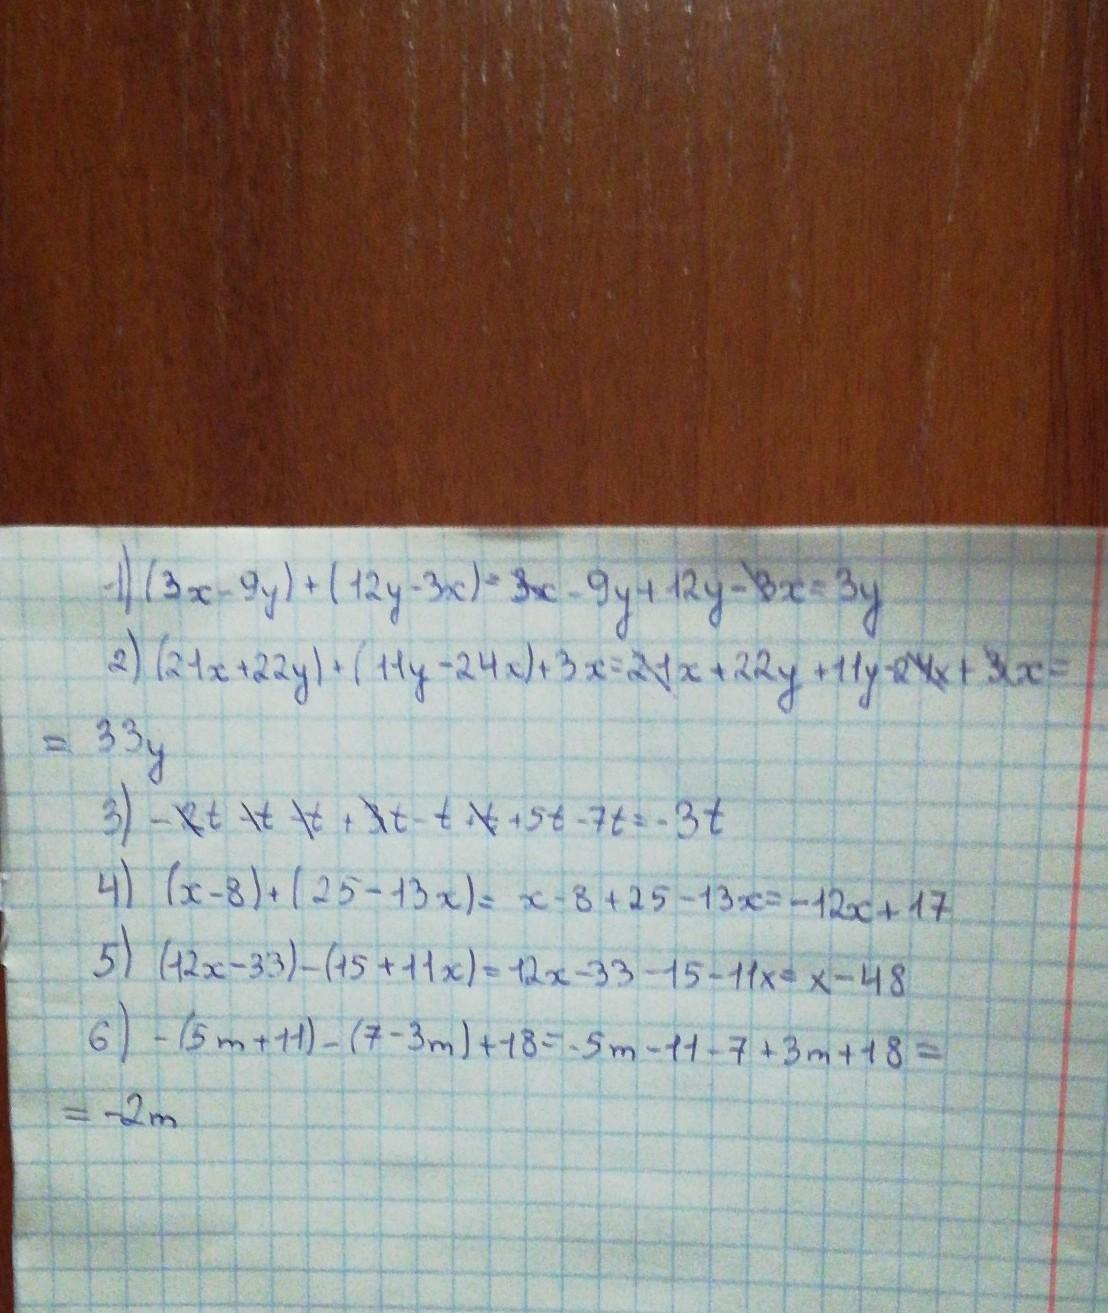 1) (3x-9y)+(12y-3x)=3x-9y+12y-3x=3y
2) (21x+22y)+(11y-24x)+3x=21x+22y+11y-24x+3x=
= 33y
3) -2t +t +t + 3t - t + t +5t -7t = -3t
4) (x-8)+(25-13x)= x-8+25-13x=-12x+17
5) (12x-33)-(15+11x)=12x-33-15-11x=x-48
6) -(5m+11)-(7-3m)+18=-5m-11-7+3m+18=
= -2m